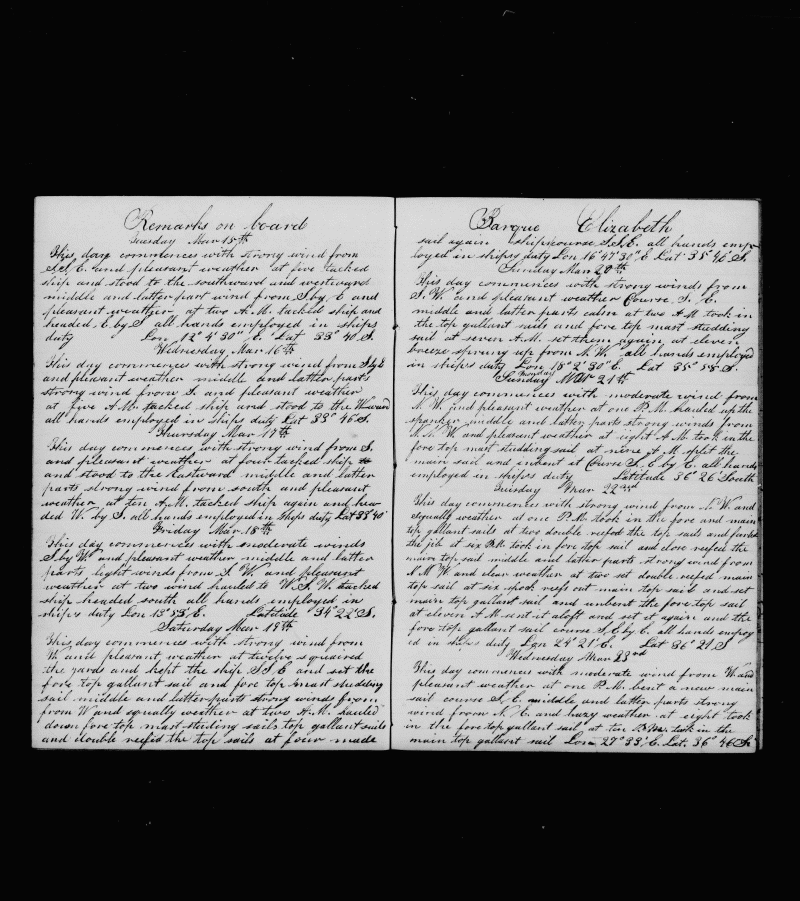 Remarks on board
Tuesday Mar 15th
This day commences with strong wind from
S.S.E. and pleasant weather at five tacked
ship and stood to the southward and westward
middle and latter part wind from S by E and
pleasant weather at two A.M. tacked ship and
headed E by S all hands employed in ships
duty Lon 12° 4' 30" E. Lat 33° 40 S.
Wednesday Mar 16th
This day commences with strong wind from S by E
and pleasant weather middle and latter parts
strong wind from S. and pleasant weather
at five A.M. tacked ship and stood to the Wward
all hands employed in ships duty Lat 33° 46 S.
Thursday Mar 17th
This day commences with strong wind from S.
and pleasant weather at four tacked ship to
and stood to the Eastward middle and latter
parts strong wind from south and pleasant
weather at ten A.M. tacked ship again and hea-
ded W. by S. all hands employed in ships duty Lat 33° 40'
Friday Mar 18th
This day commences with moderate winds
S. by W. and pleasant weather middle and latter
parts light winds from S. W and pleasant
weather at two wind hauled to W.S.W. tacked
ship headed south all hands employed in
ships duty Lon 13° 53' E. Latitude 34° 22' S.
Saturday Mar 19th
This day commences with strong wind from
W. and pleasant weather at twelve squaired
the yards and kept the ship S.S.E and set the
fore top gallant sail and fore top mast studding
sail middle and latter parts strong winds from
from W and squally weather at two A.M. hauled
down fore top mast studing sails top gallant sails
and double reefed the top sails at four made
Barque Elizabeth
sail again ships course S.S.E. all hands emp-
loyed in ships duty Lon 16° 47' 30" E Lat 35° 46' S.
Sunday Mar 20th
This day commences with strong winds from
S. W. and pleasant weather Course S. E.
middle and latter parts calm at two A.M took in
the top gallant sails and fore top mast studding
sail at seven A.M. set them again at eleven
breeze sprung up from N.W. all hands employed
in ships duty Lon 18° 2' 30" E. Lat 35° 58 S.
Monday
Sunday Mar 21th
This day commences with moderate wind from
N. W. and pleasant weather at one P.M. hauled up the
spanker middle and latter parts strong winds from
N.N.W. and pleasant weather at eight A.M. took in the
fore top mast studding sail at nine A.M. split the
main sail and unbent it Course S.E by E. all hands
employed in ships duty Latitude 36° 26' South
Tuesday Mar 22nd
This day commences with strong wind from N.W and
squally weather at one P.M. took in the fore and main
top gallant sails at two double reefed the top sails and furled
the jib at six P.M. took in fore top sail and close reefed the
main top sail middle and latter parts strong wind from
N.N.W and clear weather at two set double reefed main
top sail at six shook reefs out main top sail and set
main top gallant sail and unbent the fore top sail
at eleven A.M. sent it aloft and set it again and the
fore top gallant sail course S.E. by E. all hands employ-
ed in ships duty Lon 24° 21' E. Lat 36° 21 S
Wednesday Mar 23rd
This day commences with moderate wind from W and
pleasant weather at one P.M. bent a new main
sail course S.E. middle and latter parts strong
wind from N. E. and hazy weather at eight took
in the fore top gallant sail at ten took in the
main top gallant sail Lon 27° 33' E. Lat. 36° 46 S.